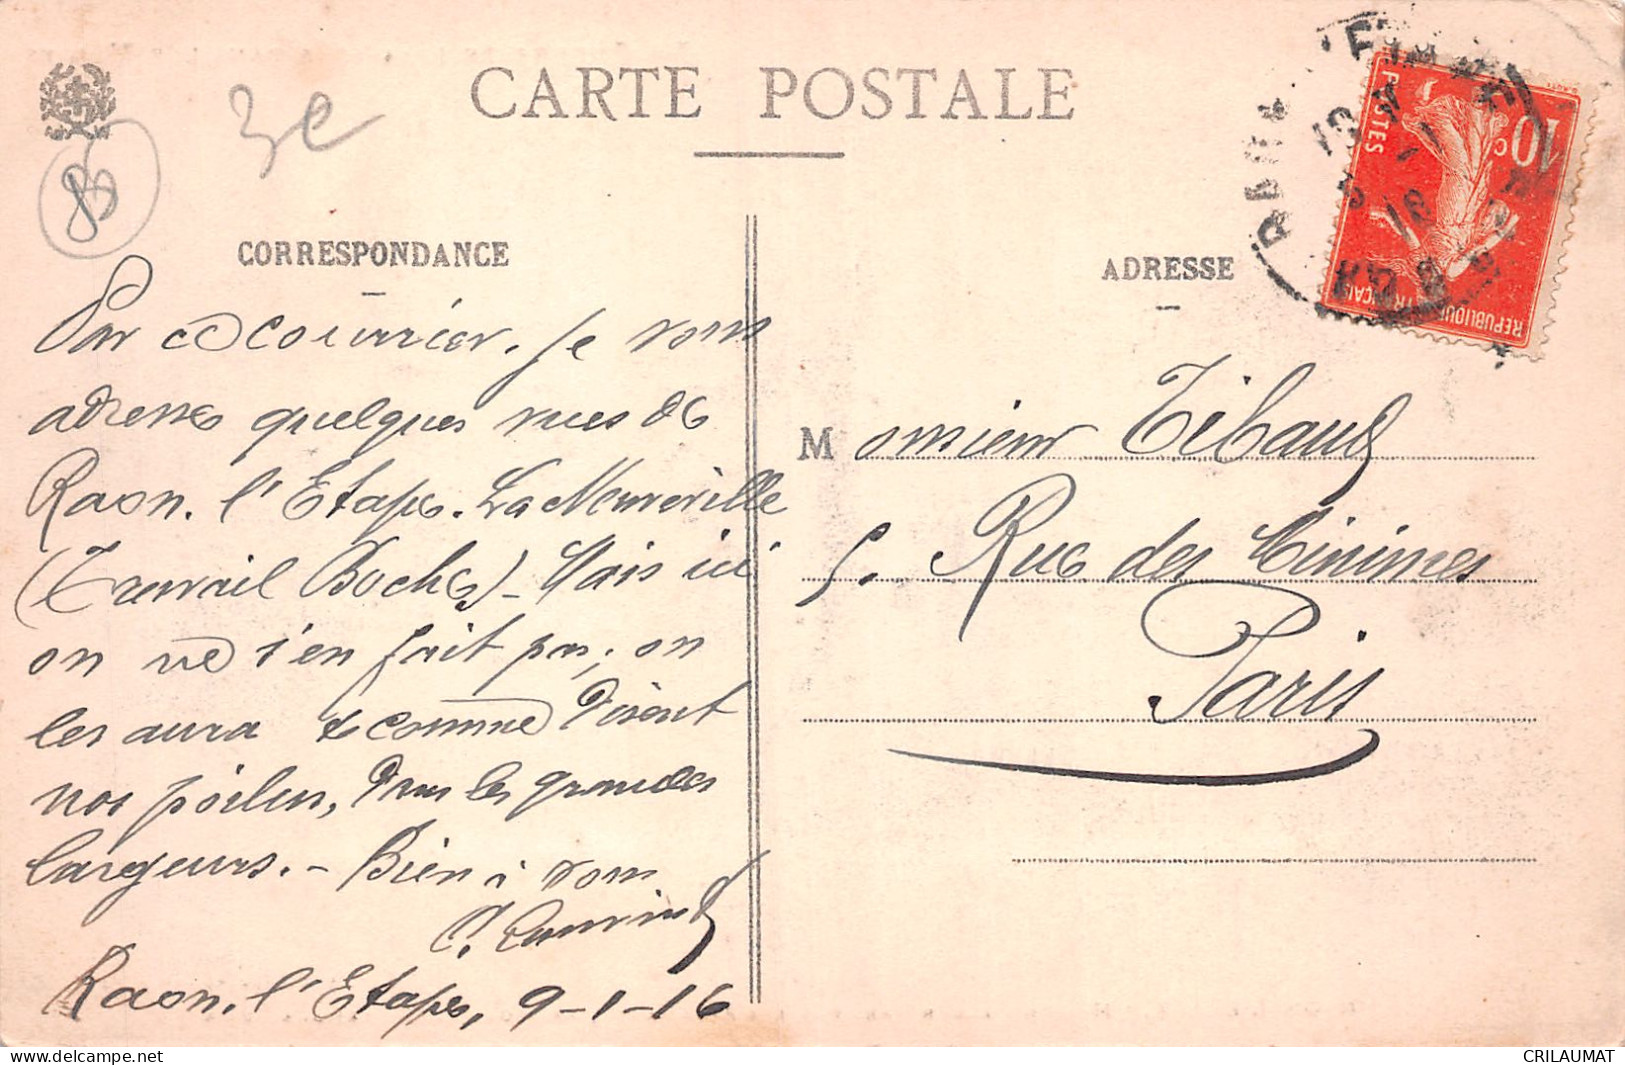 CARTE POSTALE
3e
85
CORRESPONDANCE
ADRESSE
10c
POSTES
REPUBLIQUE FRANÇAISE
Par ce courrier, je vous
adresse quelques vues de
Raon. l'Etape. La Neuveville
(Travail Boche) - Mais ici
on ne s'en fait pas; on
les aura & comme disent
nos poilus, dans les grandes
largeurs. - Bien à vous
Raon. l'Etape, 9-1-16
Monsieur Tibaud
5. Rue des Minimes
Paris
delcampe.net
CRILAUMAT